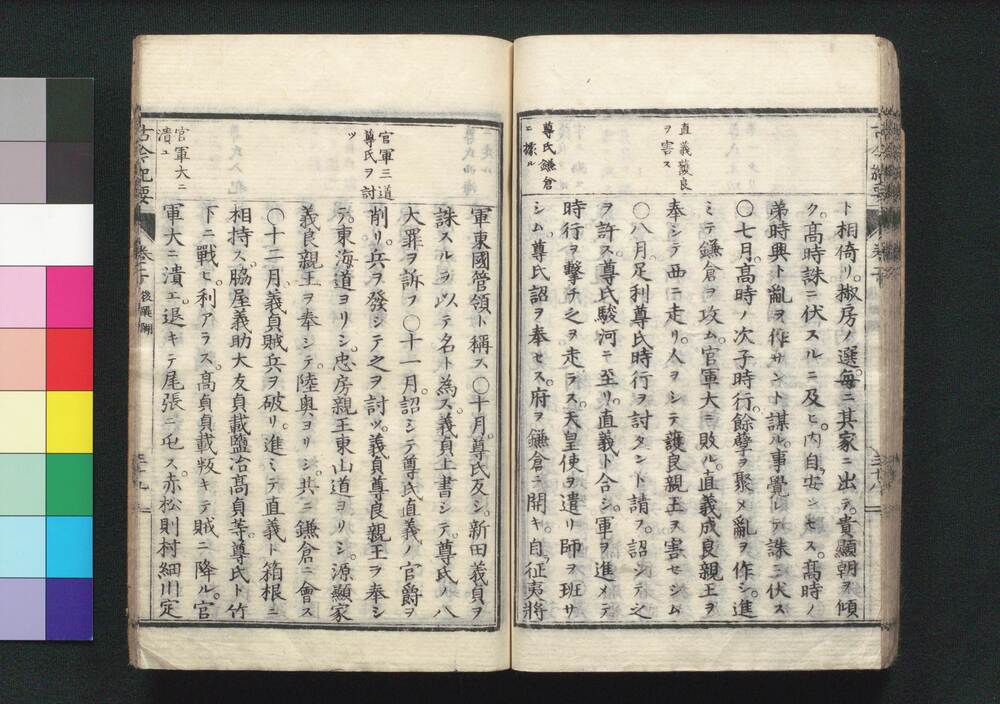 直義護良
ヲ害ス
尊氏鎌倉
ニ據ル
ト相倚リ。椒房ノ選。毎ニ其家ニ出テ。貴顯朝ヲ傾
ク。高時誅ニ伏スルニ及ヒ。内自ラ安ンセス。高時ノ
弟時興ト亂ヲ作サント謀ル。事覺レテ誅ニ伏ス
〇七月。高時ノ次子時行。餘孽ヲ聚メ亂ヲ作シ。進
ミテ鎌倉ヲ攻ム。官軍大ニ敗ル。直義成良親王ヲ
奉シテ西ニ走リ。人ヲシテ護良親王ヲ害セシム
〇八月。足利尊氏時行ヲ討タント請フ。詔シテ之
ヲ許ス。尊氏駿河ニ至リ。直義ト合シ。軍ヲ進メテ
時行ヲ擊チ之ヲ走ラス。天皇使ヲ遣リ師ヲ班サ
シム。尊氏詔ヲ奉セス。府ヲ鎌倉ニ開キ。自ラ征夷將
官軍三道
尊氏ヲ討
ツ
官軍大ニ
潰ユ
軍東國管領ト稱ス〇十月。尊氏反シ。新田義貞ヲ
誅スルヲ以テ名ト為ス。義貞上書シテ。尊氏ノ八
大罪ヲ訴フ〇十一月。詔シテ尊氏直義ノ官爵ヲ
削リ。兵ヲ發シテ之ヲ討ツ。義貞尊良親王ヲ奉シ
テ。東海道ヨリシ。忠房親王東山道ヨリシ。源顯家
義良親王ヲ奉シテ。陸奥ヨリシ。共ニ鎌倉ニ會ス
〇十二月。義貞賊兵ヲ破リ。進ミテ直義ト箱根ニ
相持ス。脇屋義助大友貞載鹽冶高貞等。尊氏ト竹
下ニ戰ヒ。利アラス。高貞貞載叛キテ賊ニ降ル。官
軍大ニ潰エ。退キテ尾張ニ屯ス。赤松則村細川定
古今紀要
巻之
後醍醐